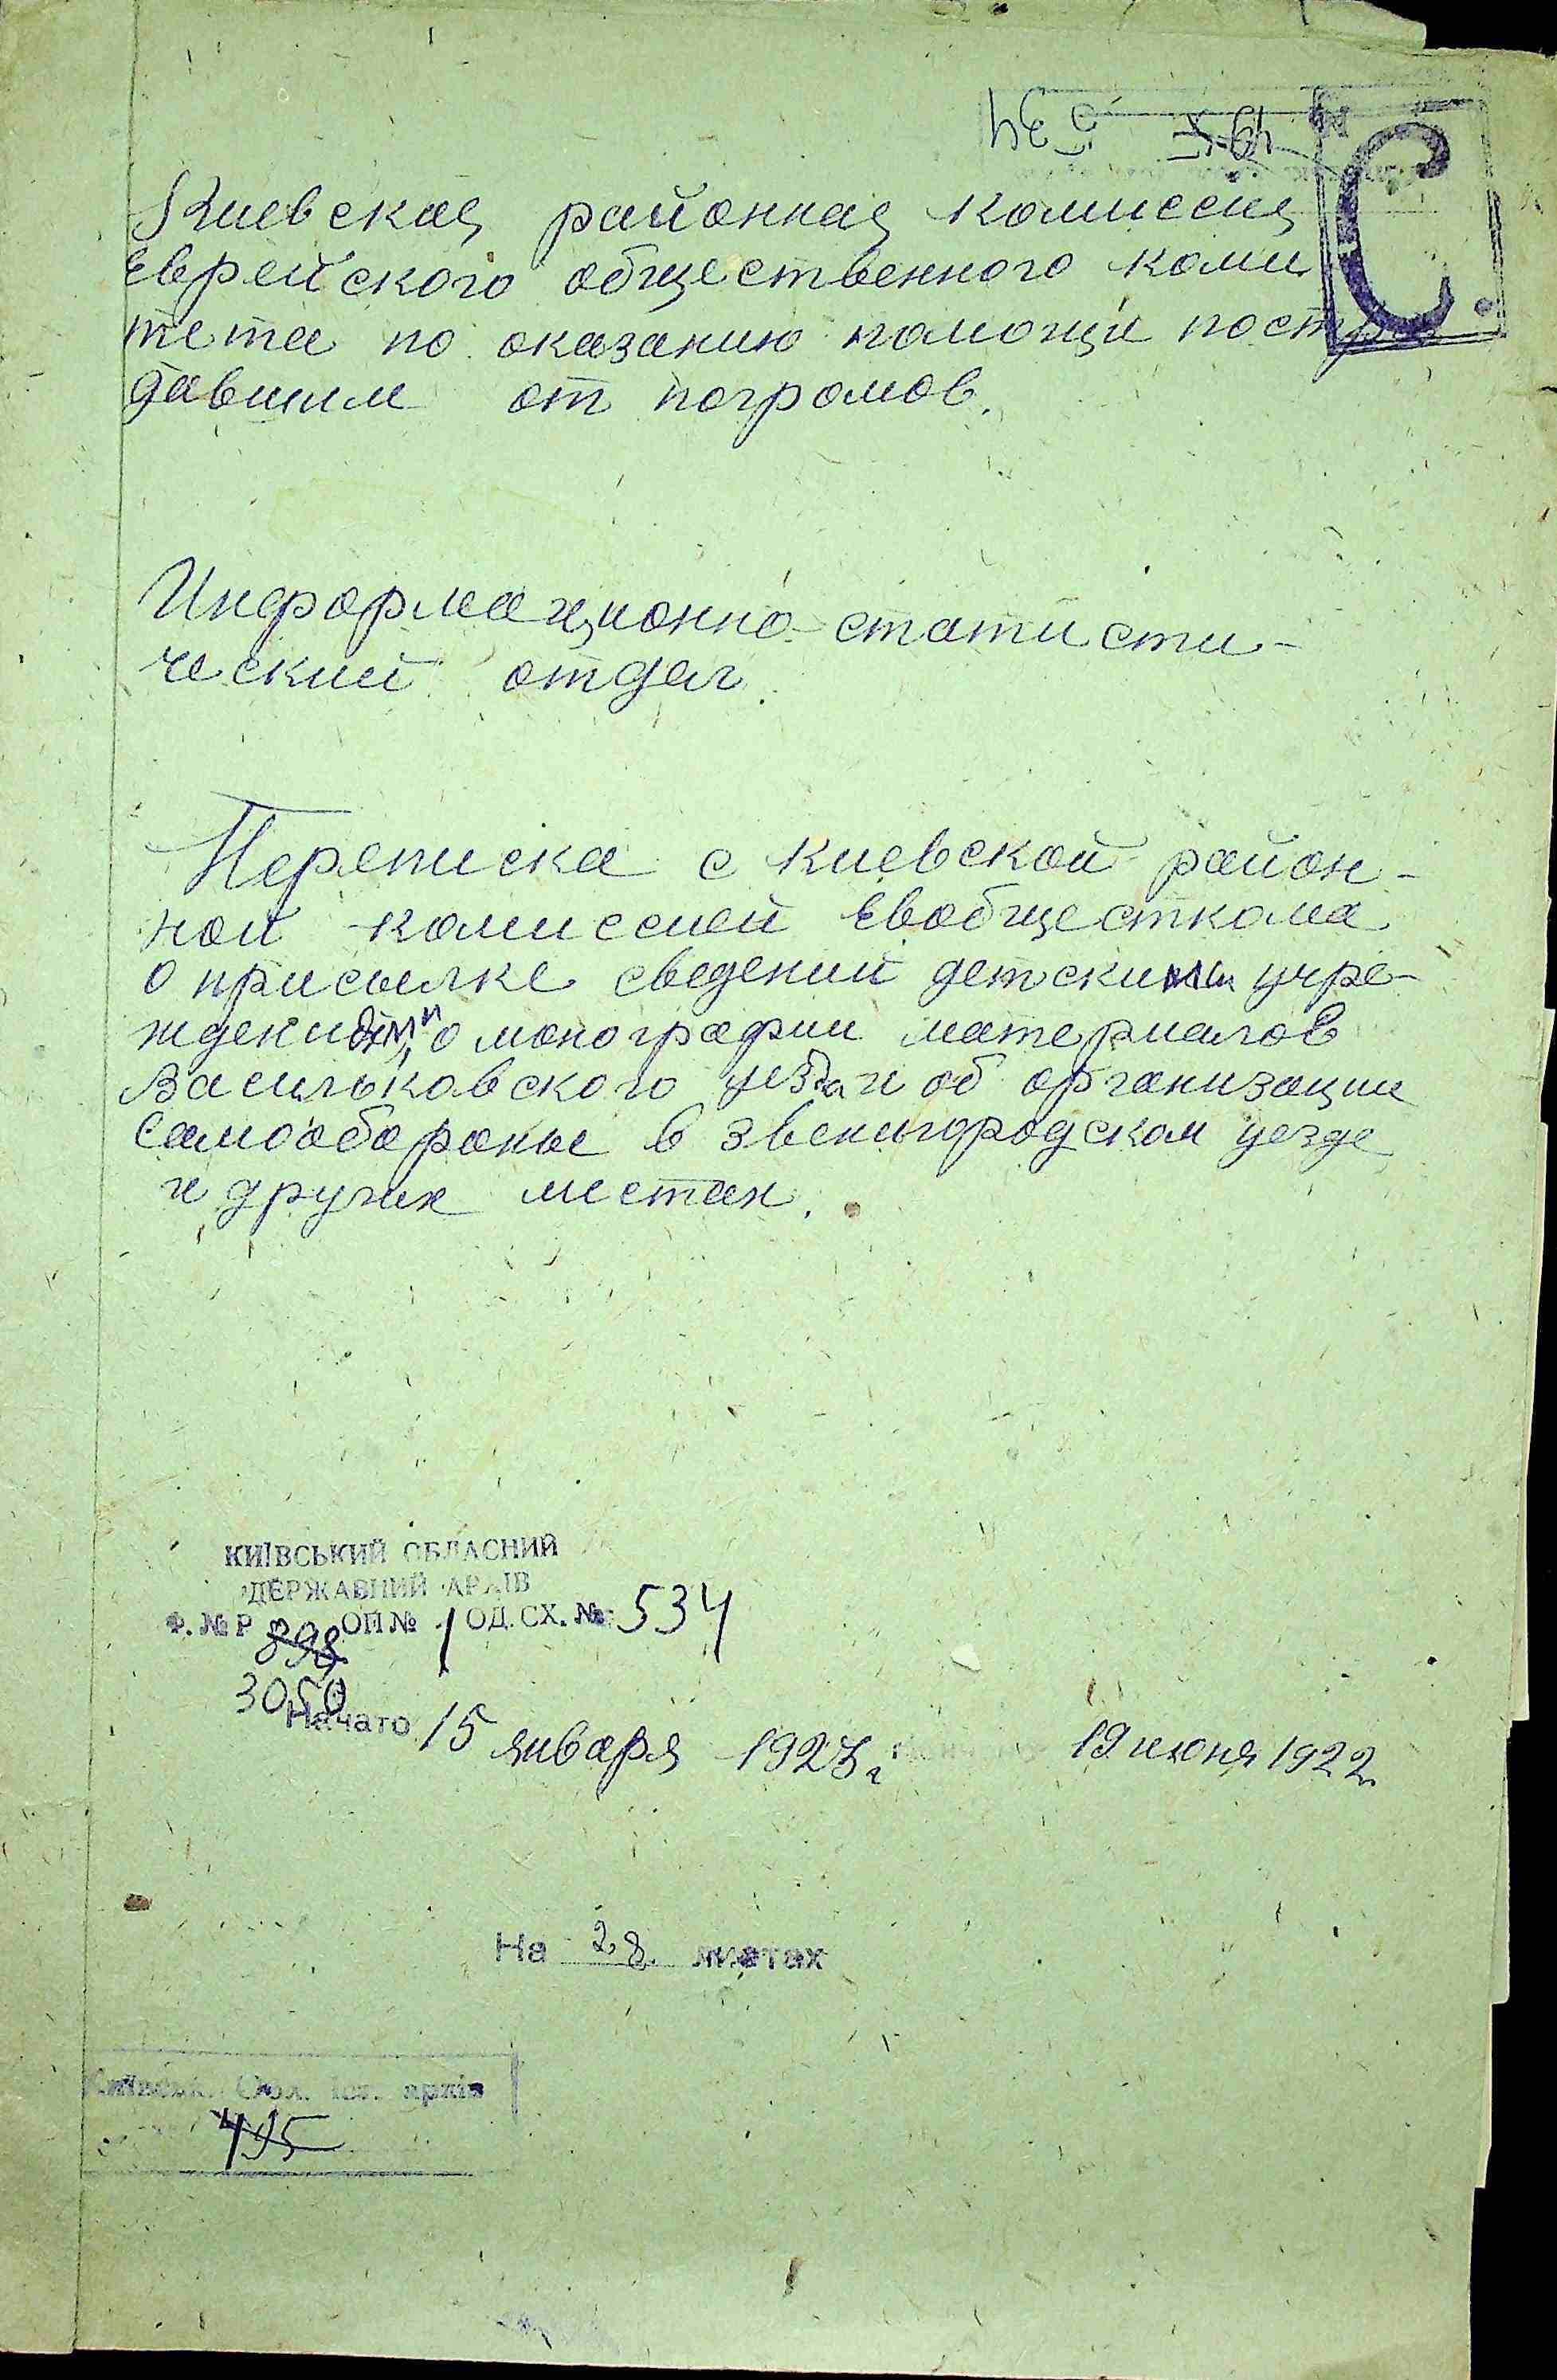 С
Киевская районная комиссия
Еврейского общественного коми
тета по оказанию помощи постра
давшим от погромов.
Информационно-статисти-
ческий отдел.
Переписка с Киевской район-
ной комиссией Евобщесткома
о присылке сведений детскими учре-
ждениями, о монографии материалов
Васильковского уезда и об организации
самообороны в Звенигородском уезде
и других местах.
КИЇВСЬКИЙ ОБЛАСНИЙ
ДЕРЖАВНИЙ АРХІВ
Ф. № Р 898 ОП № 1 ОД. СХ. № 534
3050
Начато 15 января 1921 г. 19 июня 1922
На 28 листах
Київськ. Обл. Іст. архів
495